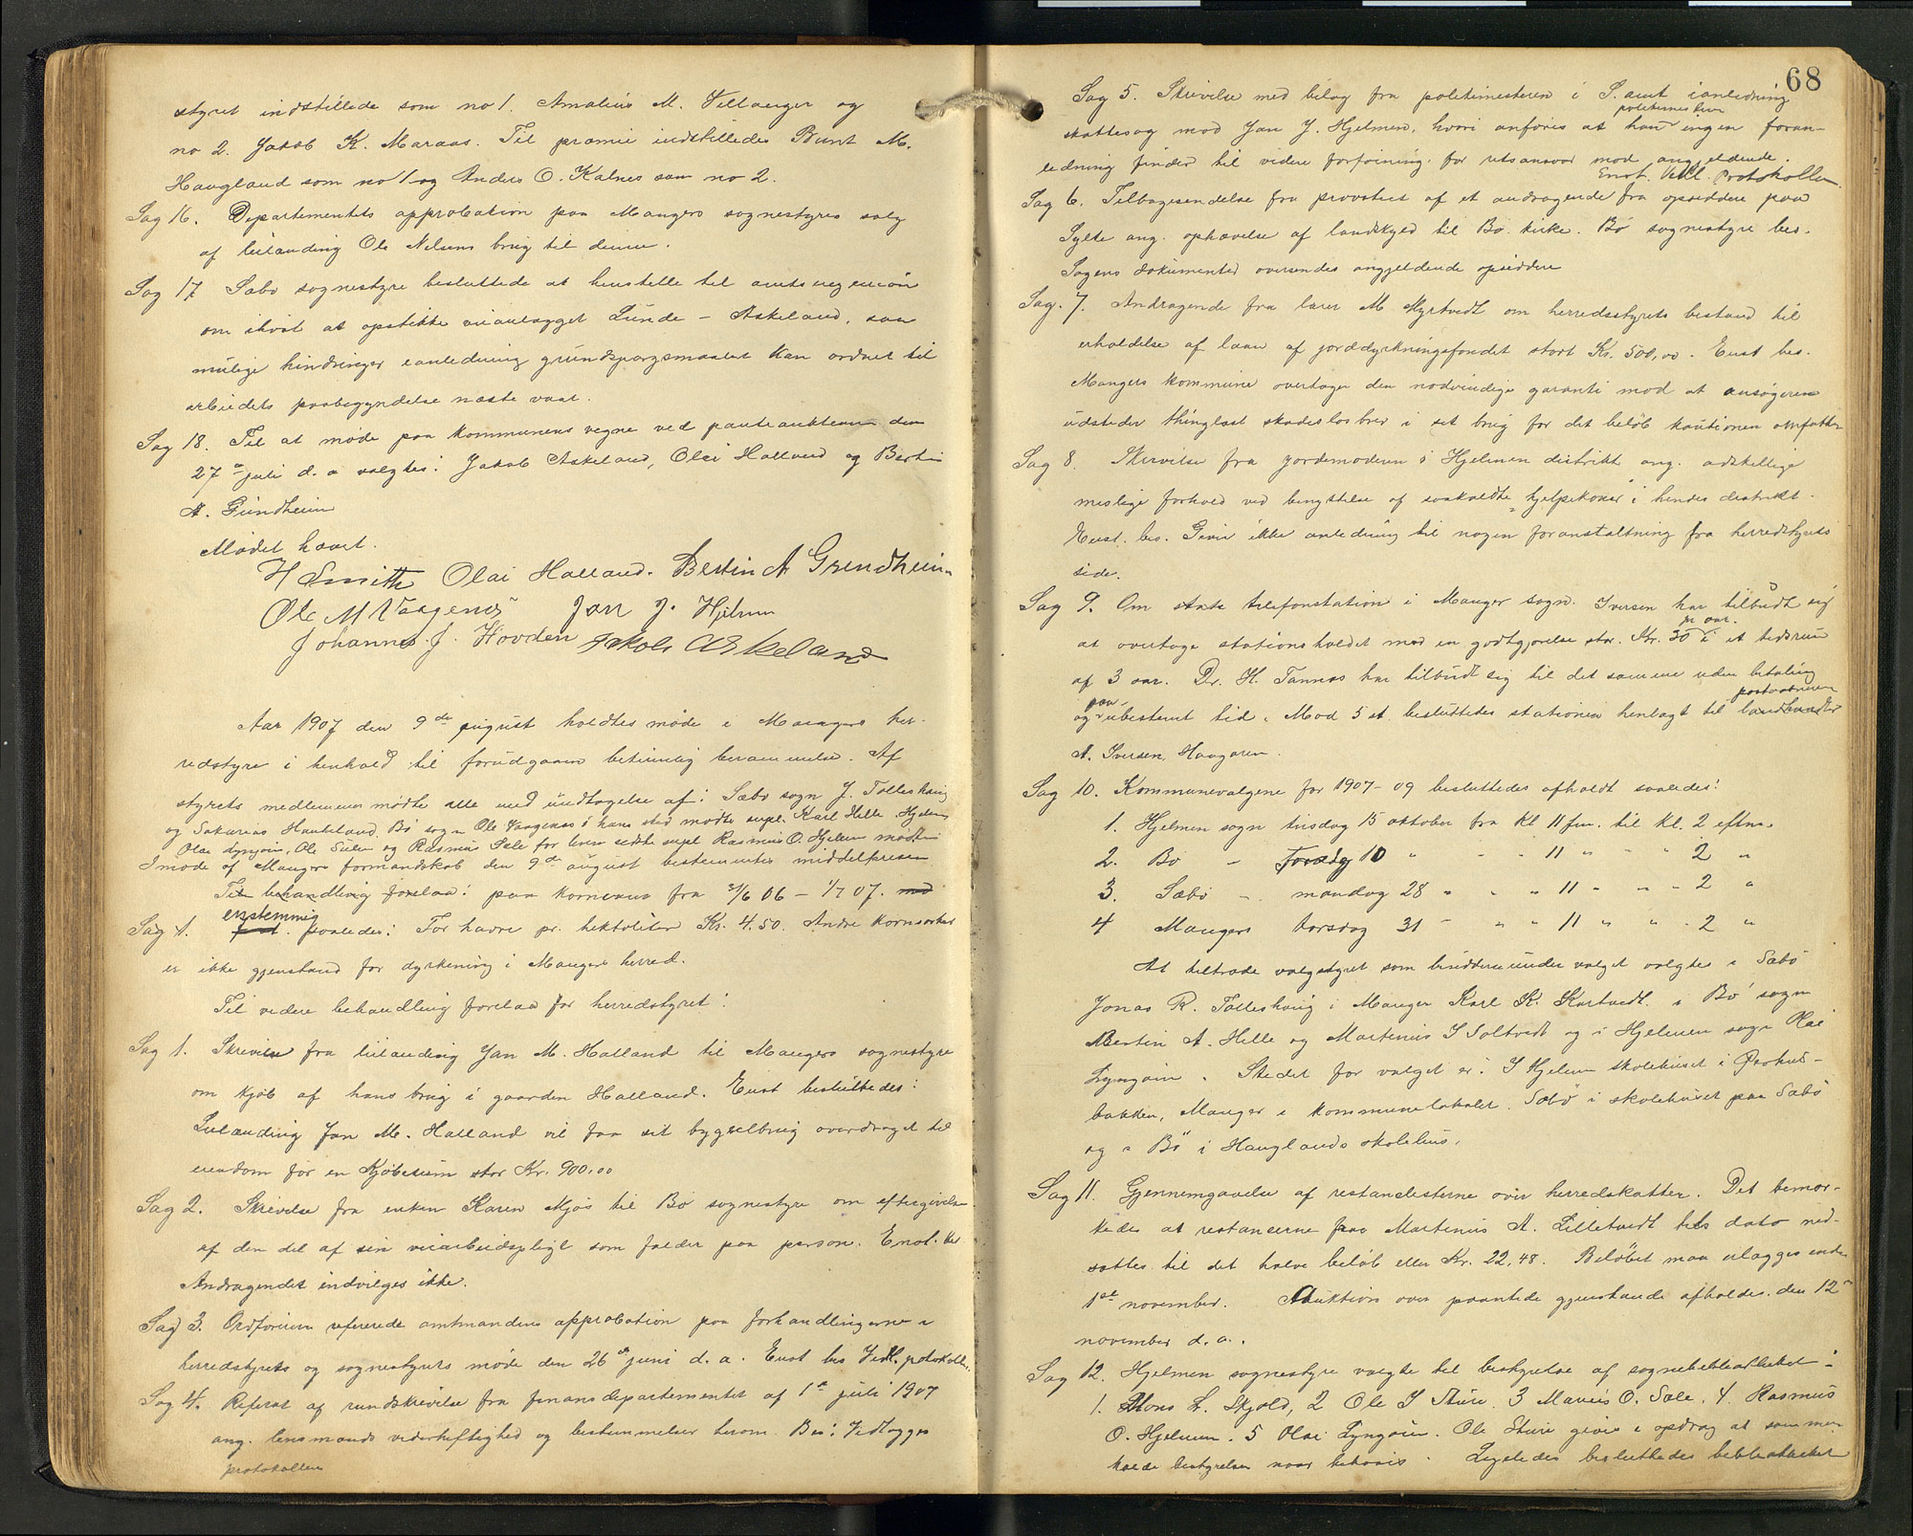 styret indstillede som no 1. Amalius M. Vetlanger og
no 2. Jakob K. Maraas. Til præmie indstilledes Bernt M.
Haugland som no 1 og Anders O. Kalnes som no 2.
Sag 16. Departementets approbation paa Mangers sognestyres salg
af leilænding Ole Nilsens brug til denne.
Sag 17. Sæbø sognestyre besluttede at henstille til amtsingeniør
om ihvst at opstikke veianlægget Lunde - Askeland, saa
mulige hindringer i anledning grundspørgsmaalet kan ordnes til
arbeidets paabegyndelse næste vaar.
Sag 18. Til at møde paa kommunens vegne ved panteauktionen den
27de juli d. a valgtes: Jakob Askeland, Olai Halland og Bertin
A. Grindheim
Mødet hævet.
H Smith Olai Halland. Bertin A Grendheim
Ole M Vaagenes Jan J. Hjelmen
Johannes J. Hovden Jakob Askeland
Aar 1907 den 9de august holdtes møde i Mangers her-
redstyre i henhold til forudgaaen betimelig berammelse. Af
styrets medlemmer mødte alle med undtagelse af: Sæbø sogn J. Tolleshaug
og Sakarias Haukeland, Bø sogn Ole Vaagenes i hans sted mødte supl. Karl Hille. Hjelmen
Olai Lyngøin, Ole Sture og Rasmus Sæle for hvem sidste supl Rasmus O. Hjelmen mødte
I møde af Mangers formandskab den 9de august bestemtes middelprisen
Til behandling forelaa: paa kornvarer fra 1/6 06 - 1/7 07. med
enstemmig
Sag 1. saaledes: For havre pr. hektoliter Kr. 4.50. Andre kornsorter
er ikke gjenstand for dyrkening i Manger herred.
Til videre behandling forelaa for herredstyret:
Sag 1. Skrivelse fra leilænding Jan M. Halland til Mangers sognestyre
om kjøb af hans brug i gaarden Halland. Enst besluttedes:
Leilænding Jan M. Halland vil faa sit bygselbrug overdraget til
eiendom for en Kjøbesum stor Kr. 900.00
Sag 2. Skrivelse fra enken Karen Mjøs til Bø sognestyre om eftergivelse
af den del af sin veiarbeidspligt som falder paa person. Enst. bes
Andragendet indvilges ikke.
Sag 3. Ordføreren refererede amtmandens approbation paa forhandlingerne i
herredstyrets og sognestyrets møde den 26de juni d. a. Enst bes Vedl. protokollen.
Sag 4. Referat af rundskrivelse fra finansdepartementet af 1ste juli 1907
ang. lensmænds vederheftighed og bestemmelser herom. Bes: Vedlægges
protokollen
68
Sag 5. Skrivelse med bilag fra politimesteren i S. amt i anledning
politimesteren
skattesag mod Jan J. Hjelmen, hvori anføres at han ingen foran-
ledning finder til videre forføining for retsansvar mod angjeldende.
Enst. Vedl. Protokollen
Sag 6. Tilbagesendelse fra provstiet af et andragende fra opsiddere paa
Sylte ang. ophævelse af landskyld til Bø kirke. Bø sognestyre bes.
Sagens dokumenter oversendes angjeldende opsiddere
Sag. 7. Andragende fra lærer M Myrtvedt om herredsstyrets bestand til
erholdelse af laan af jorddyrkningsfondet stort Kr. 500,00. Enst bes.
Mangers kommune overtager den nødvendige garanti mod at ansøgeren
udsteder thinglæst skadesløsbrev i sit brug for det beløb kautionen omfatter
Sag 8. Skrivelse fra jordemoderen i Hjelmen distrikt ang. adskillige
mislige forhold ved benyttelse af saakaldte "hjelpekoner" i hendes distrikt.
Enst. bes. Giver ikke anledning til nogen foranstaltning fra herredstyrets
side.
Sag 9. Om stats telefonstation i Manger sogn. Iversen har tilbudt sig
pr aar.
at overtage stationsholdet mod en godtgjørelse stor Kr. 30 i et tidsrum
af 3 aar. Dr. H. Tannæs har tilbudt sig til det samme uden betaling
paa postaabneren
og ubestemt tid. Mod 5 st. besluttedes stationen henlagt til landhandler
A. Iversen, Haugøren.
Sag 10. Kommunevalgene for 1907-09 besluttedes afholdt saaledes:
1. Hjelmen sogn tirsdag 15 oktober fra kl 11 fm. til kl. 2 eftm.
2. Bø - Torsdag 10 " " " 11 " " " 2 "
3. Sæbø - mandag 28 " " " 11 " " " 2 "
4 Mangers torsdag 31 " " " 11 " " " 2 "
At tiltræde valgstyret som bisiddere under valget valgtes i Sæbø
Jonas R. Tolleshaug i Manger Karl K. Kartvedt. i Bø sogn
Bertin A. Hille og Martinus I Soltvedt og i Hjelmen sogn Olai
Lyngøin. Stedet for valget er: I Hjelmen skolehuset i Prohus-
bakken, Manger i kommunelokalet. Sæbø i skolehuset paa Sæbø
og i Bø i Hauglands skolehus.
Sag 11. Gjennemgaaelse af restancelisterne over herredskatter. Det bemær-
kedes at restancerne paa Martinus A. Lilletvedt til dato ned-
sættes til det halve beløb eller Kr. 22,48. Beløbet maa erlægges inden
1ste november. Auktion over pantede gjenstande afholdes den 12te
november d. a.
Sag 12. Hjelmen sognestyre valgte til bestyrelse af sognebibliotheket:
1. Mons L. Skjold, 2 Ole I Sture. 3 Marius O. Sæle. 4. Rasmus
O. Hjelmen. 5 Olai Lyngøin. Ole Sture gives i opdrag at sammen
kalde bestyrelsen naar behøves. Ligeledes besluttedes bibliotheket